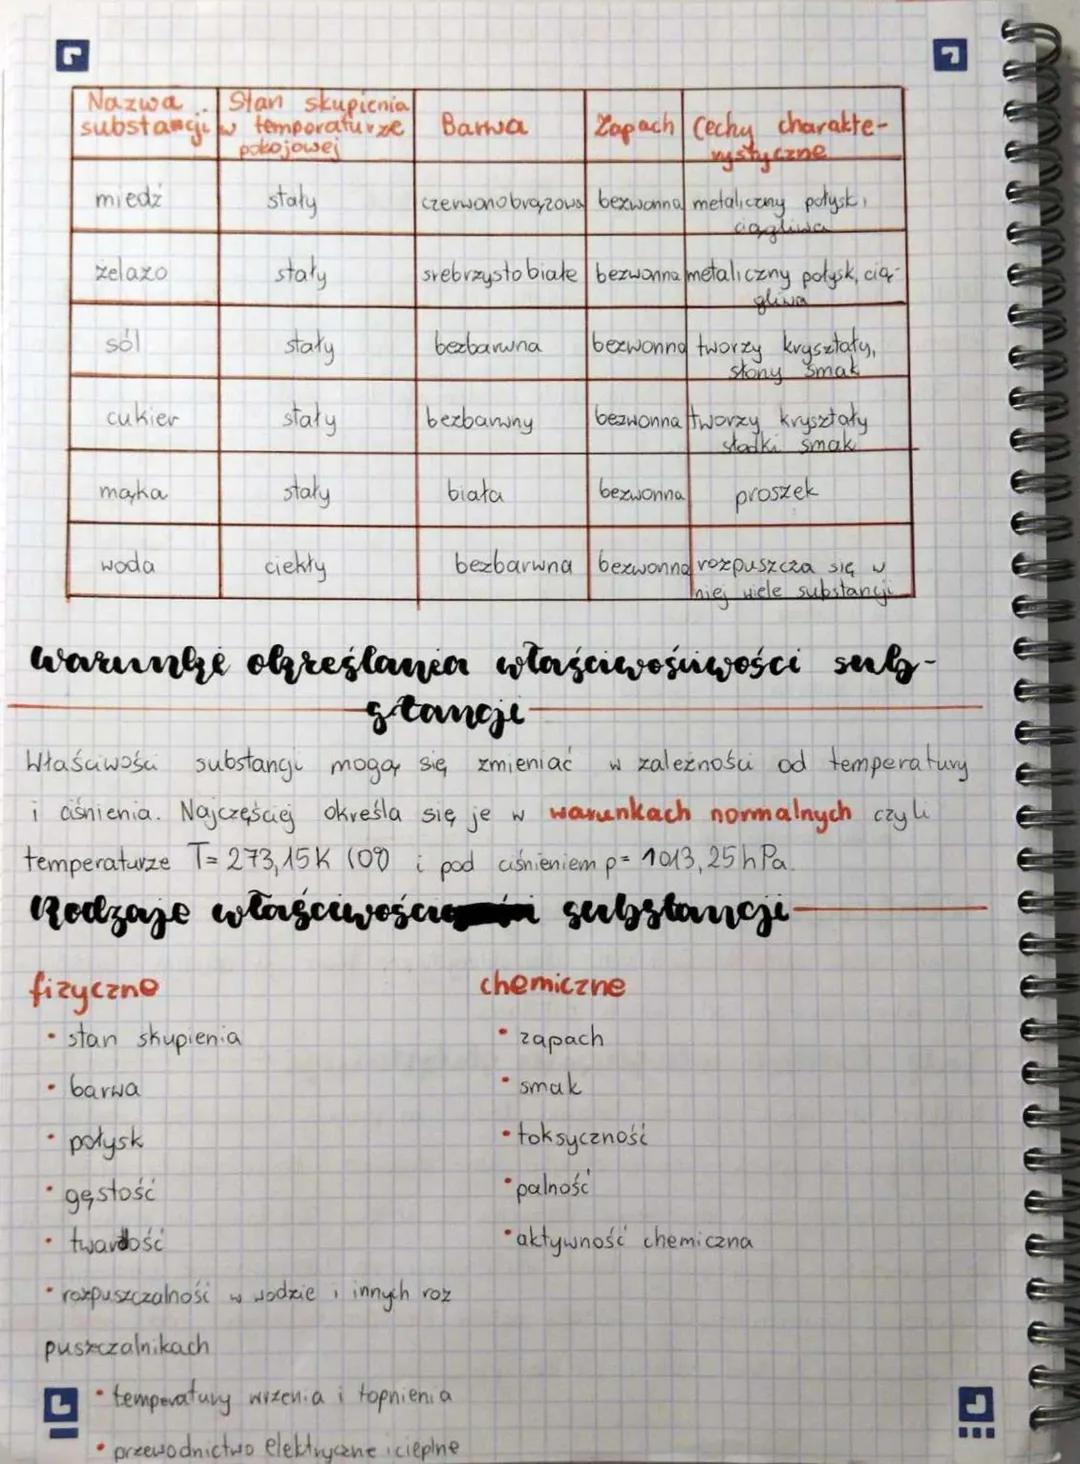 Nazwa substancji | Stan skupienia w temperaturze pokojowej | Barwa | Zapach | Cechy charakterystyczne
miedź | stały | czerwonobrązowa | bezwonna | metaliczny połysk, ciągliwa
żelazo | stały | srebrzystobiałe | bezwonna | metaliczny połysk, ciągliwa
sól | stały | bezbarwna | bezwonna | tworzy kryształy, słony smak
cukier | stały | bezbarwny | bezwonna | tworzy kryształy słodki smak
mąka | stały | biała | bezwonna | proszek
woda | ciekły | bezbarwna | bezwonna | rozpuszcza się w niej wiele substancji
warunki określania właściwościwości sub-
stancji
Właściwości substancji mogą się zmieniać w zależności od temperatury
i ciśnienia. Najczęściej określa się je w warunkach normalnych czyli
temperaturze T= 273,15K (0°) i pod ciśnieniem p= 1013,25hPa.
Rodzaje właściwości substancji
fizyczne
• stan skupienia
• barwa
• połysk
• gęstość
• twardość
• rozpuszczalność w wodzie i innych roz
puszczalnikach
• temperatury wrzenia i topnienia
• przewodnictwo elektryczne i cieplne
chemiczne
• zapach
• smak
• toksyczność
• palność
• aktywność chemiczna